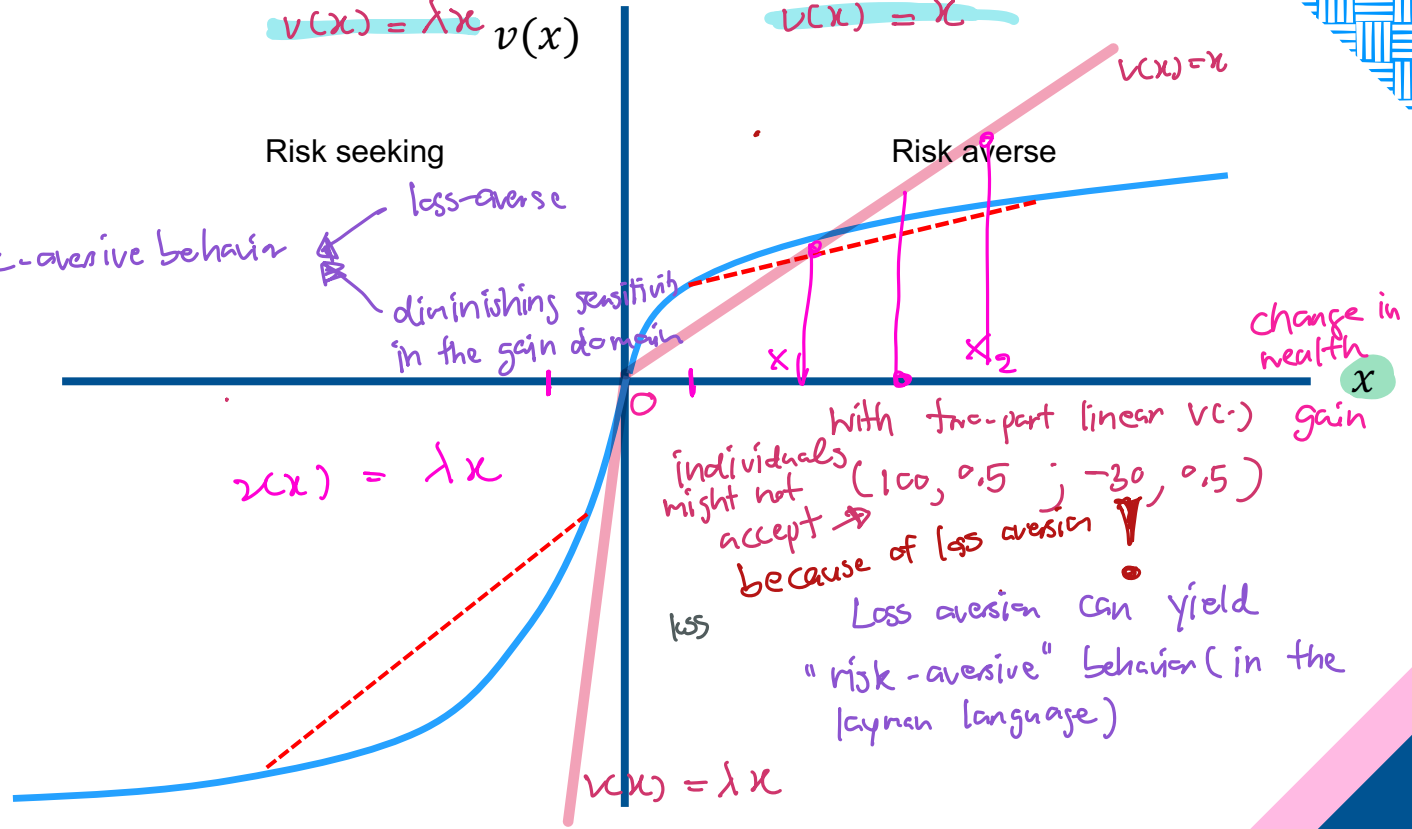 v(x) = λx
v(x)
v(x) = x
v(x) = x
Risk seeking
Risk averse
loss-averse
-aversive behavior
diminishing sensitivity
in the gain domain
x1
x2
change in
wealth
x
0
gain
with two-part linear v(·)
v(x) = λx
individuals
might not
accept → (100, 0.5 ; -30, 0.5)
because of loss aversion !
loss
Loss aversion can yield
"risk-aversive" behavior (in the
layman language)
v(x) = λx